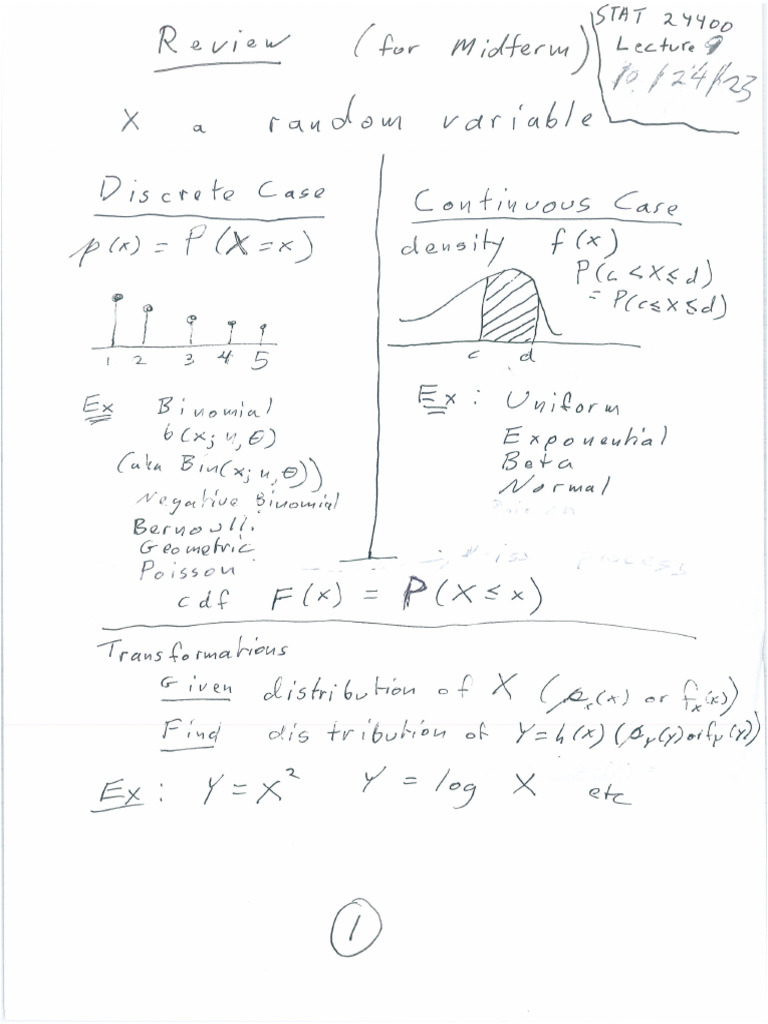 Review (for Midterm)
STAT 24400
Lecture 9
10/24/23
X a random variable
Discrete Case
p(x) = P(X=x)
1 2 3 4 5
Ex Binomial
b(x; n, θ)
(aka Bin(x; n, θ))
Negative Binomial
Bernoulli
Geometric
Poisson
Continuous Case
density f(x)
P(c < X ≤ d)
= P(c ≤ X ≤ d)
c d
Ex: Uniform
Exponential
Beta
Normal
cdf F(x) = P(X ≤ x)
Transformations
Given distribution of X (p_X(x) or f_X(x))
Find distribution of Y = h(X) (p_Y(y) or f_Y(y))
Ex: Y = X² Y = log X etc
1